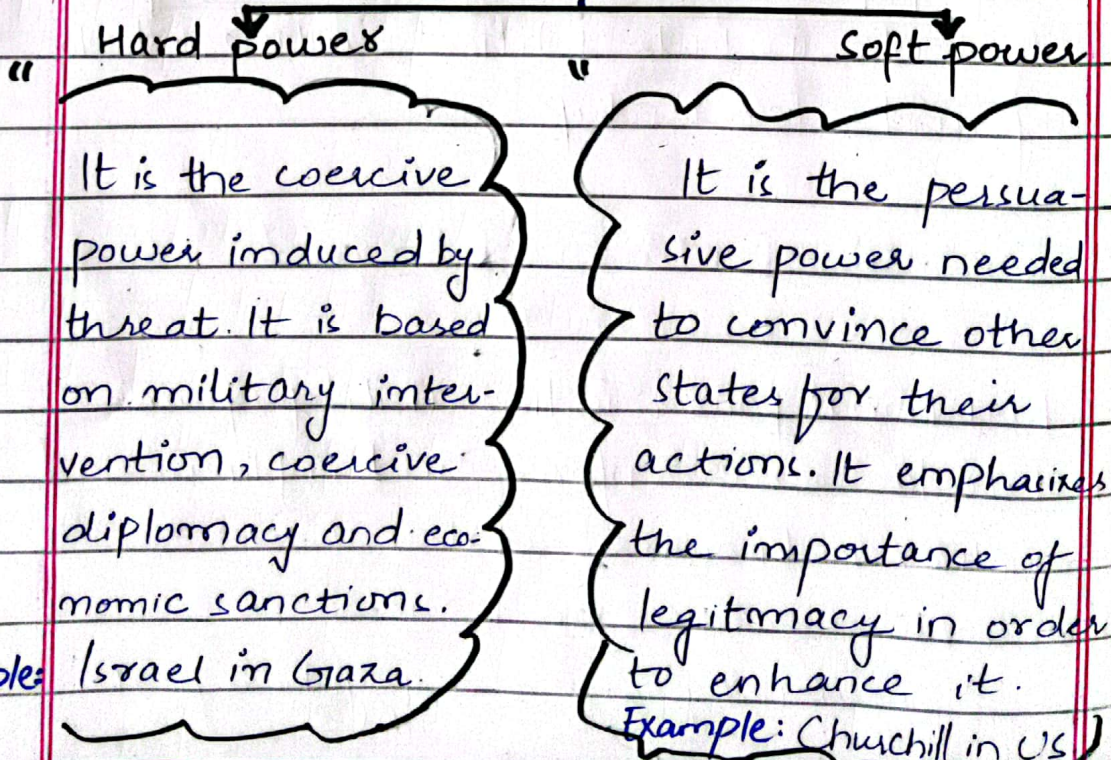 Hard power
"
It is the coercive
power induced by
threat. It is based
on military inter-
vention, coercive
diplomacy and eco-
nomic sanctions.
ple: Israel in Gaza.
Soft power
"
It is the persua-
sive power needed
to convince other
states for their
actions. It emphasizes
the importance of
legitmacy in order
to enhance it.
Example: Churchill in US